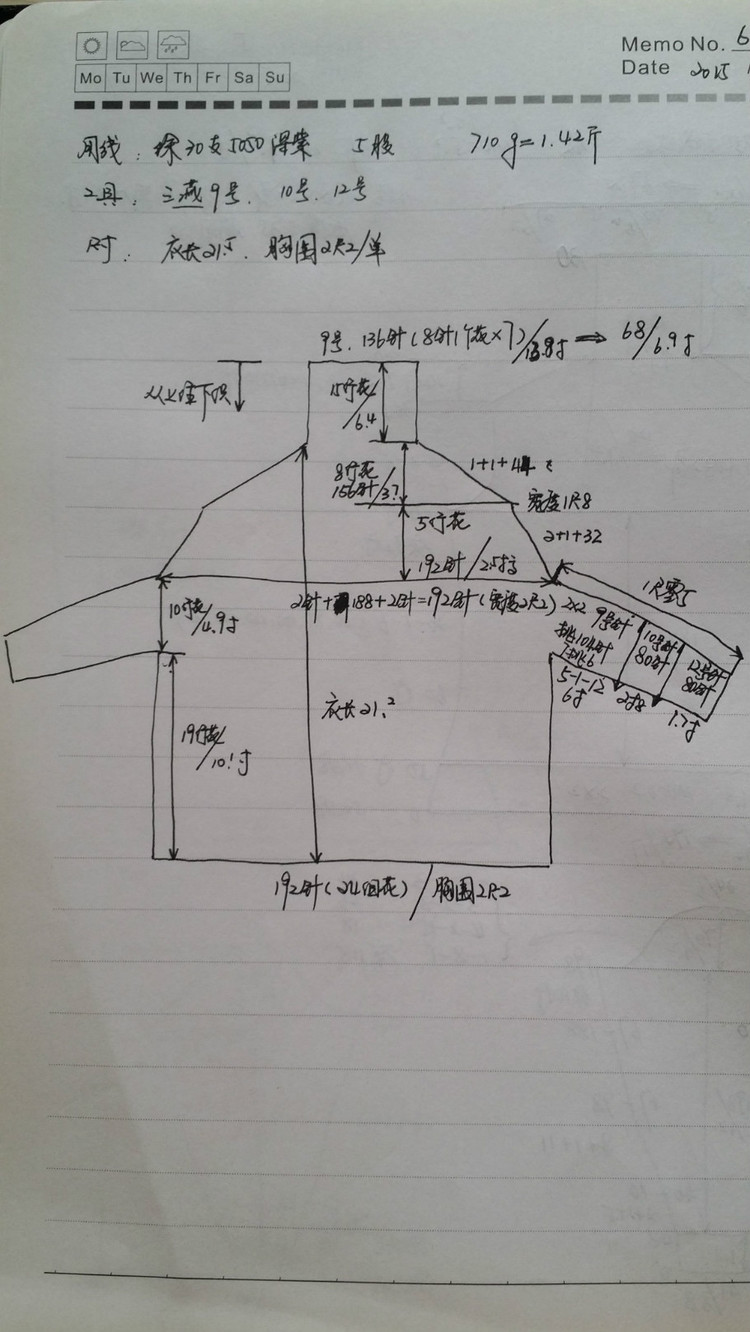 Memo No. 6
Mo Tu We Th Fr Sa Su
Date 2015
用线: 30支5050 5股 710g=1.42斤
工具: 三燕9号. 10号. 12号
尺寸: 衣长21.5. 胸围2尺2/单
9号. 136针(8针1个花×7)/13.8寸 ⇒ 68/6.9寸
从上往下织
15行花/6.4
8行花
156针/3?
1+1+44
宽度1尺8
5行花
2+1+32
192针/2.5寸
1尺零5
10行花/4.9寸
2针+188+2针=192针(宽度2尺2)
2×2
9号针
挑104针
5-1-12
6寸
10号针
80针
2寸8
12号针
80针
1.7寸
衣长21.2
19行花/10.1寸
192针(24组花)/胸围2尺2